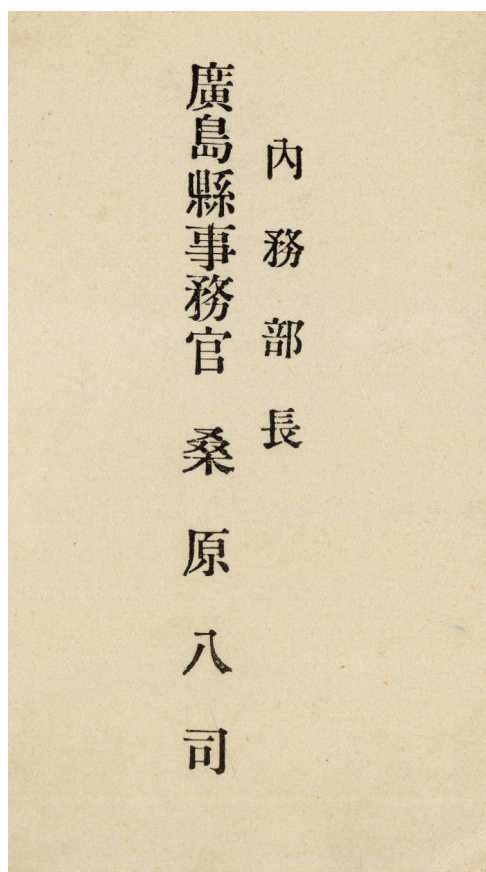 內務部長
廣島縣事務官 桑原八司